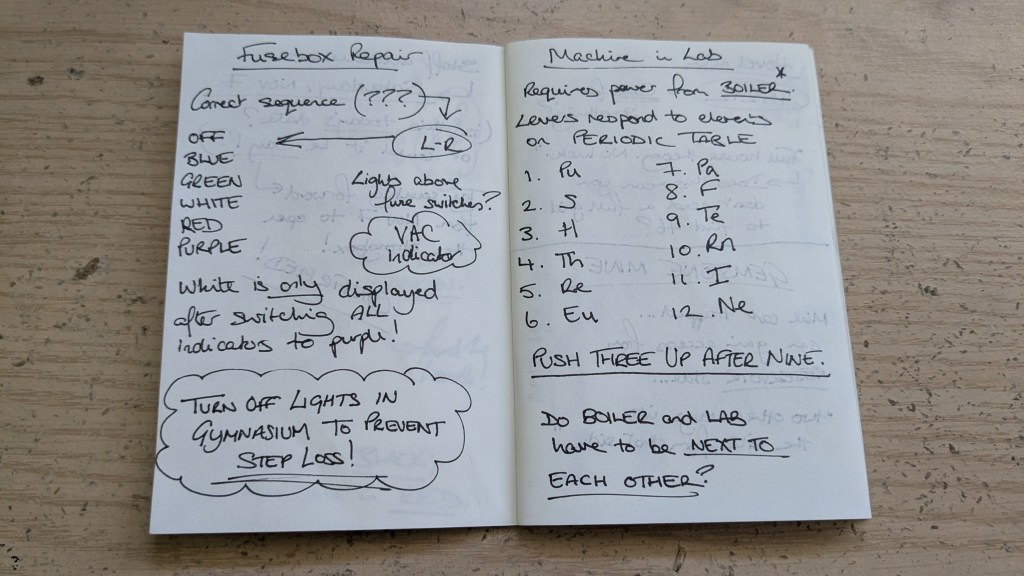 Fusebox Repair
Correct sequence (???)
L-R
OFF
BLUE
GREEN
WHITE
RED
PURPLE
Lights above
fuse switches?
VAC
indicator
White is only displayed
after switching ALL
indicators to purple!
TURN OFF LIGHTS IN
GYMNASIUM TO PREVENT
STEP LOSS!
Machine in Lab
Requires power from BOILER.*
Levers respond to elements
on PERIODIC TABLE
1. Pu
2. S
3. H
4. Th
5. Re
6. Eu
7. Pa
8. F
9. Te
10. Rn
11. I
12. Ne
PUSH THREE UP AFTER NINE.
Do BOILER and LAB
have to be NEXT TO
EACH OTHER?
?